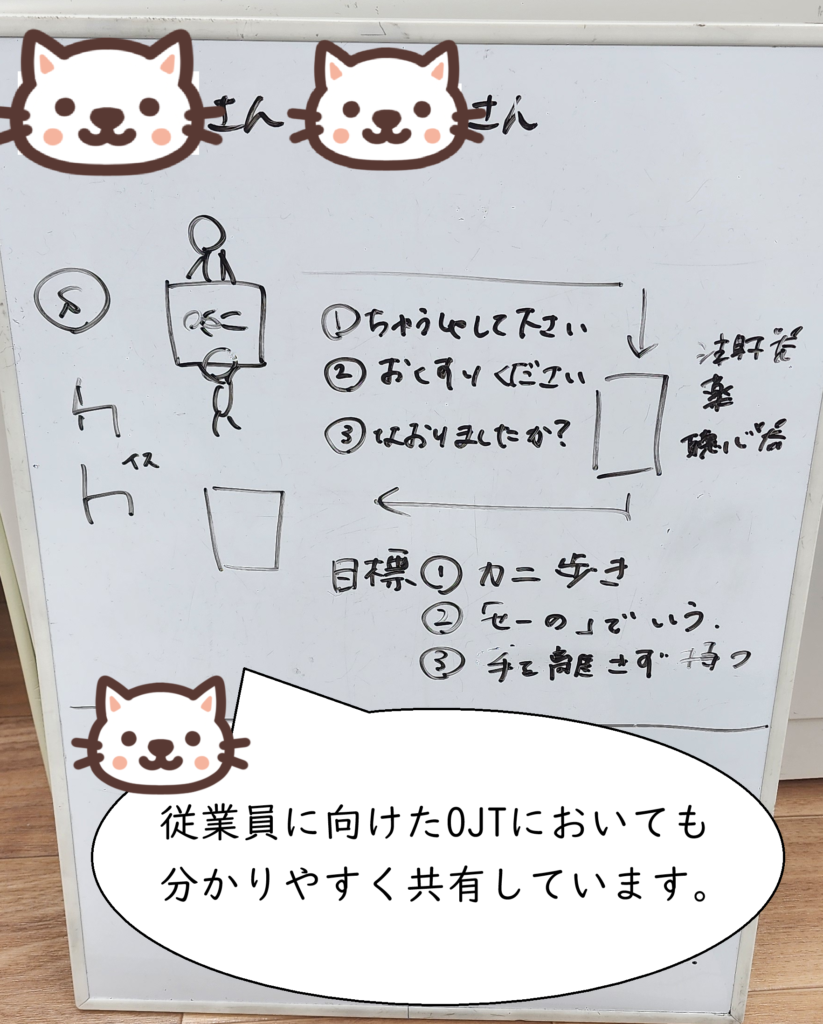 さん さん
ネ
はこ
①ちゅうしゃして下さい
②おくすりください
③なおりましたか？
注射器
薬
聴心器
イス
目標①カニ歩き
②「せーの」でいう.
③手を離さず持つ
従業員に向けたOJTにおいても
分かりやすく共有しています。